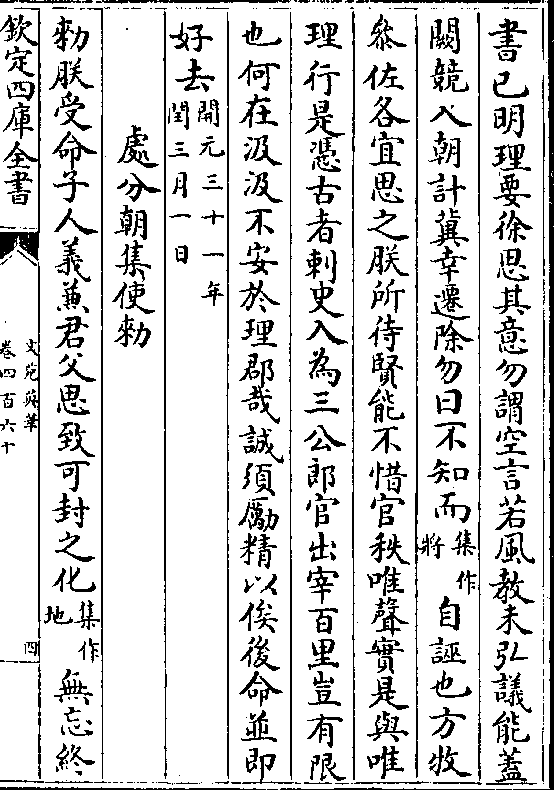 書已明理要徐思其意勿謂空言若風教未弘議能蓋
闕競入朝計冀幸遷除勿曰不知而集作將自誣也方牧
叅佐各宜思之朕所待賢能不惜官秩唯聲實是與唯
理行是憑古者刺史入為三公郎官出宰百里豈有限
也何在汲汲不安於理郡哉誠須勵精以俟後命並即
好去開元三十一年閏三月一日
處分朝集使勑
勑朕受命子人義兼君父思致可封之化集作地無忘終
欽定四庫全書
文苑英華
卷四百六十
四